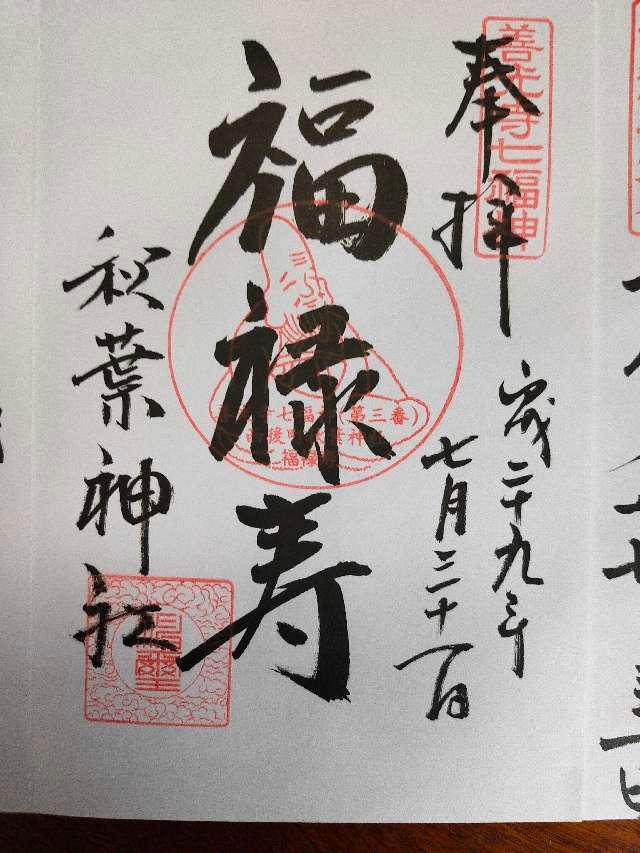 善光寺七福神
奉拝
平成二十九年
七月三十一日
福禄寿
七福 (第三番)
西後町 葉神社
福禄
秋葉神社